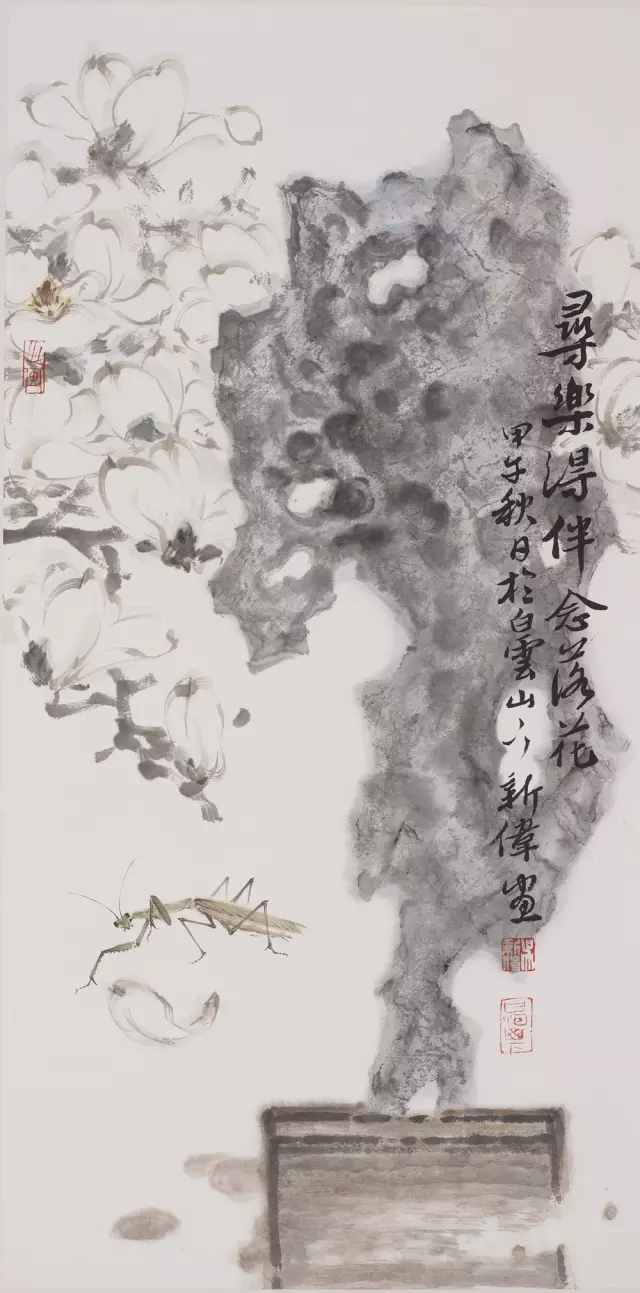 尋樂得伴念落花
甲午秋日於白雲山下新偉畫